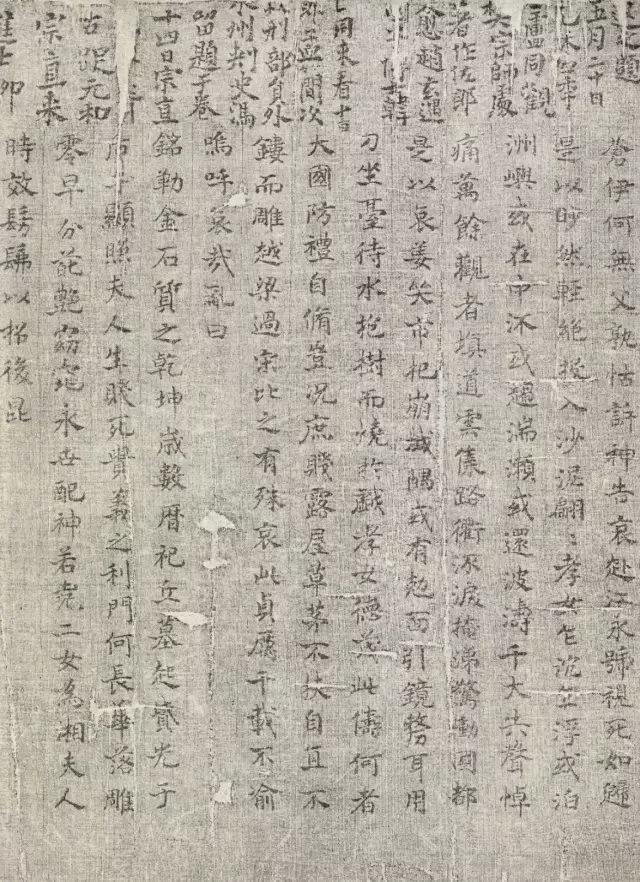 退之題
五月二十日
盧同觀
樊宗師處
著作佐郎
愈趙玄遇
韓
同来看十三日
刑部員外
州刺史馮
留題于卷
十四日宗直
元和
宗直来
蒼伊何無父孰怙訴神告哀赴江永號視死如歸
是以眇然輕絕投入沙泥翩〻孝女乍沉乍浮或泊
洲嶼或在中流或趨湍瀨或還波濤千夫共聲悼
痛萬餘觀者填道雲集路衢泣淚掩涕驚動國都
是以哀姜哭市杞崩城隅或有尅面引鏡剺耳用
刀坐臺待水抱樹而燒於戲孝女德茂此儔何者
大國防禮自脩豈況庶賤露屋草茅不扶自直不
鏤而雕越梁過宋比之有殊哀此貞厲千載不渝
嗚呼哀哉亂曰
銘勒金石質之乾坤歲數曆祀立墓起墳光于
后土顯照夫人生賤死貴義之利門何長華落雕
零早分葩艷窈窕永世配神若堯二女為湘夫人
時效髣髴以招後昆